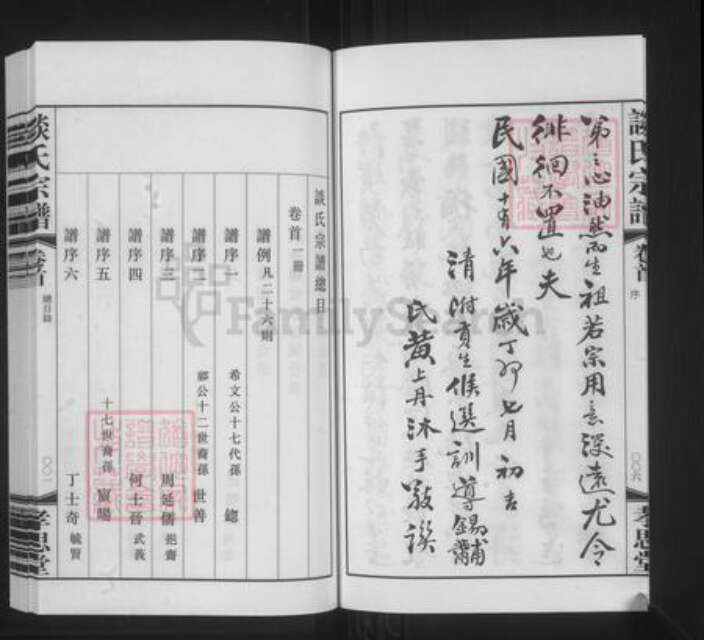 談氏宗譜 卷首 序 〇〇六 孝思堂
弟之心油然而生祖若宗用意深遠尤令
徘徊不置也夫
民國十有六年歲丁卯七月初吉
清附貢生候選訓導錫黼
氏黃上丹沐手敬譔
談氏宗譜總目
卷首一冊
譜例 凡二十六則
譜序一 希文公十七代孫 總
譜序二 郷公十二世裔孫 世善
譜序三 周延儒 挹齋
譜序四 何士晉 武莪
譜序五 十七世裔孫
譜序六 丁士奇 毓賢
談氏宗譜 卷首 總目錄 〇〇一 孝思堂
FamilySearch